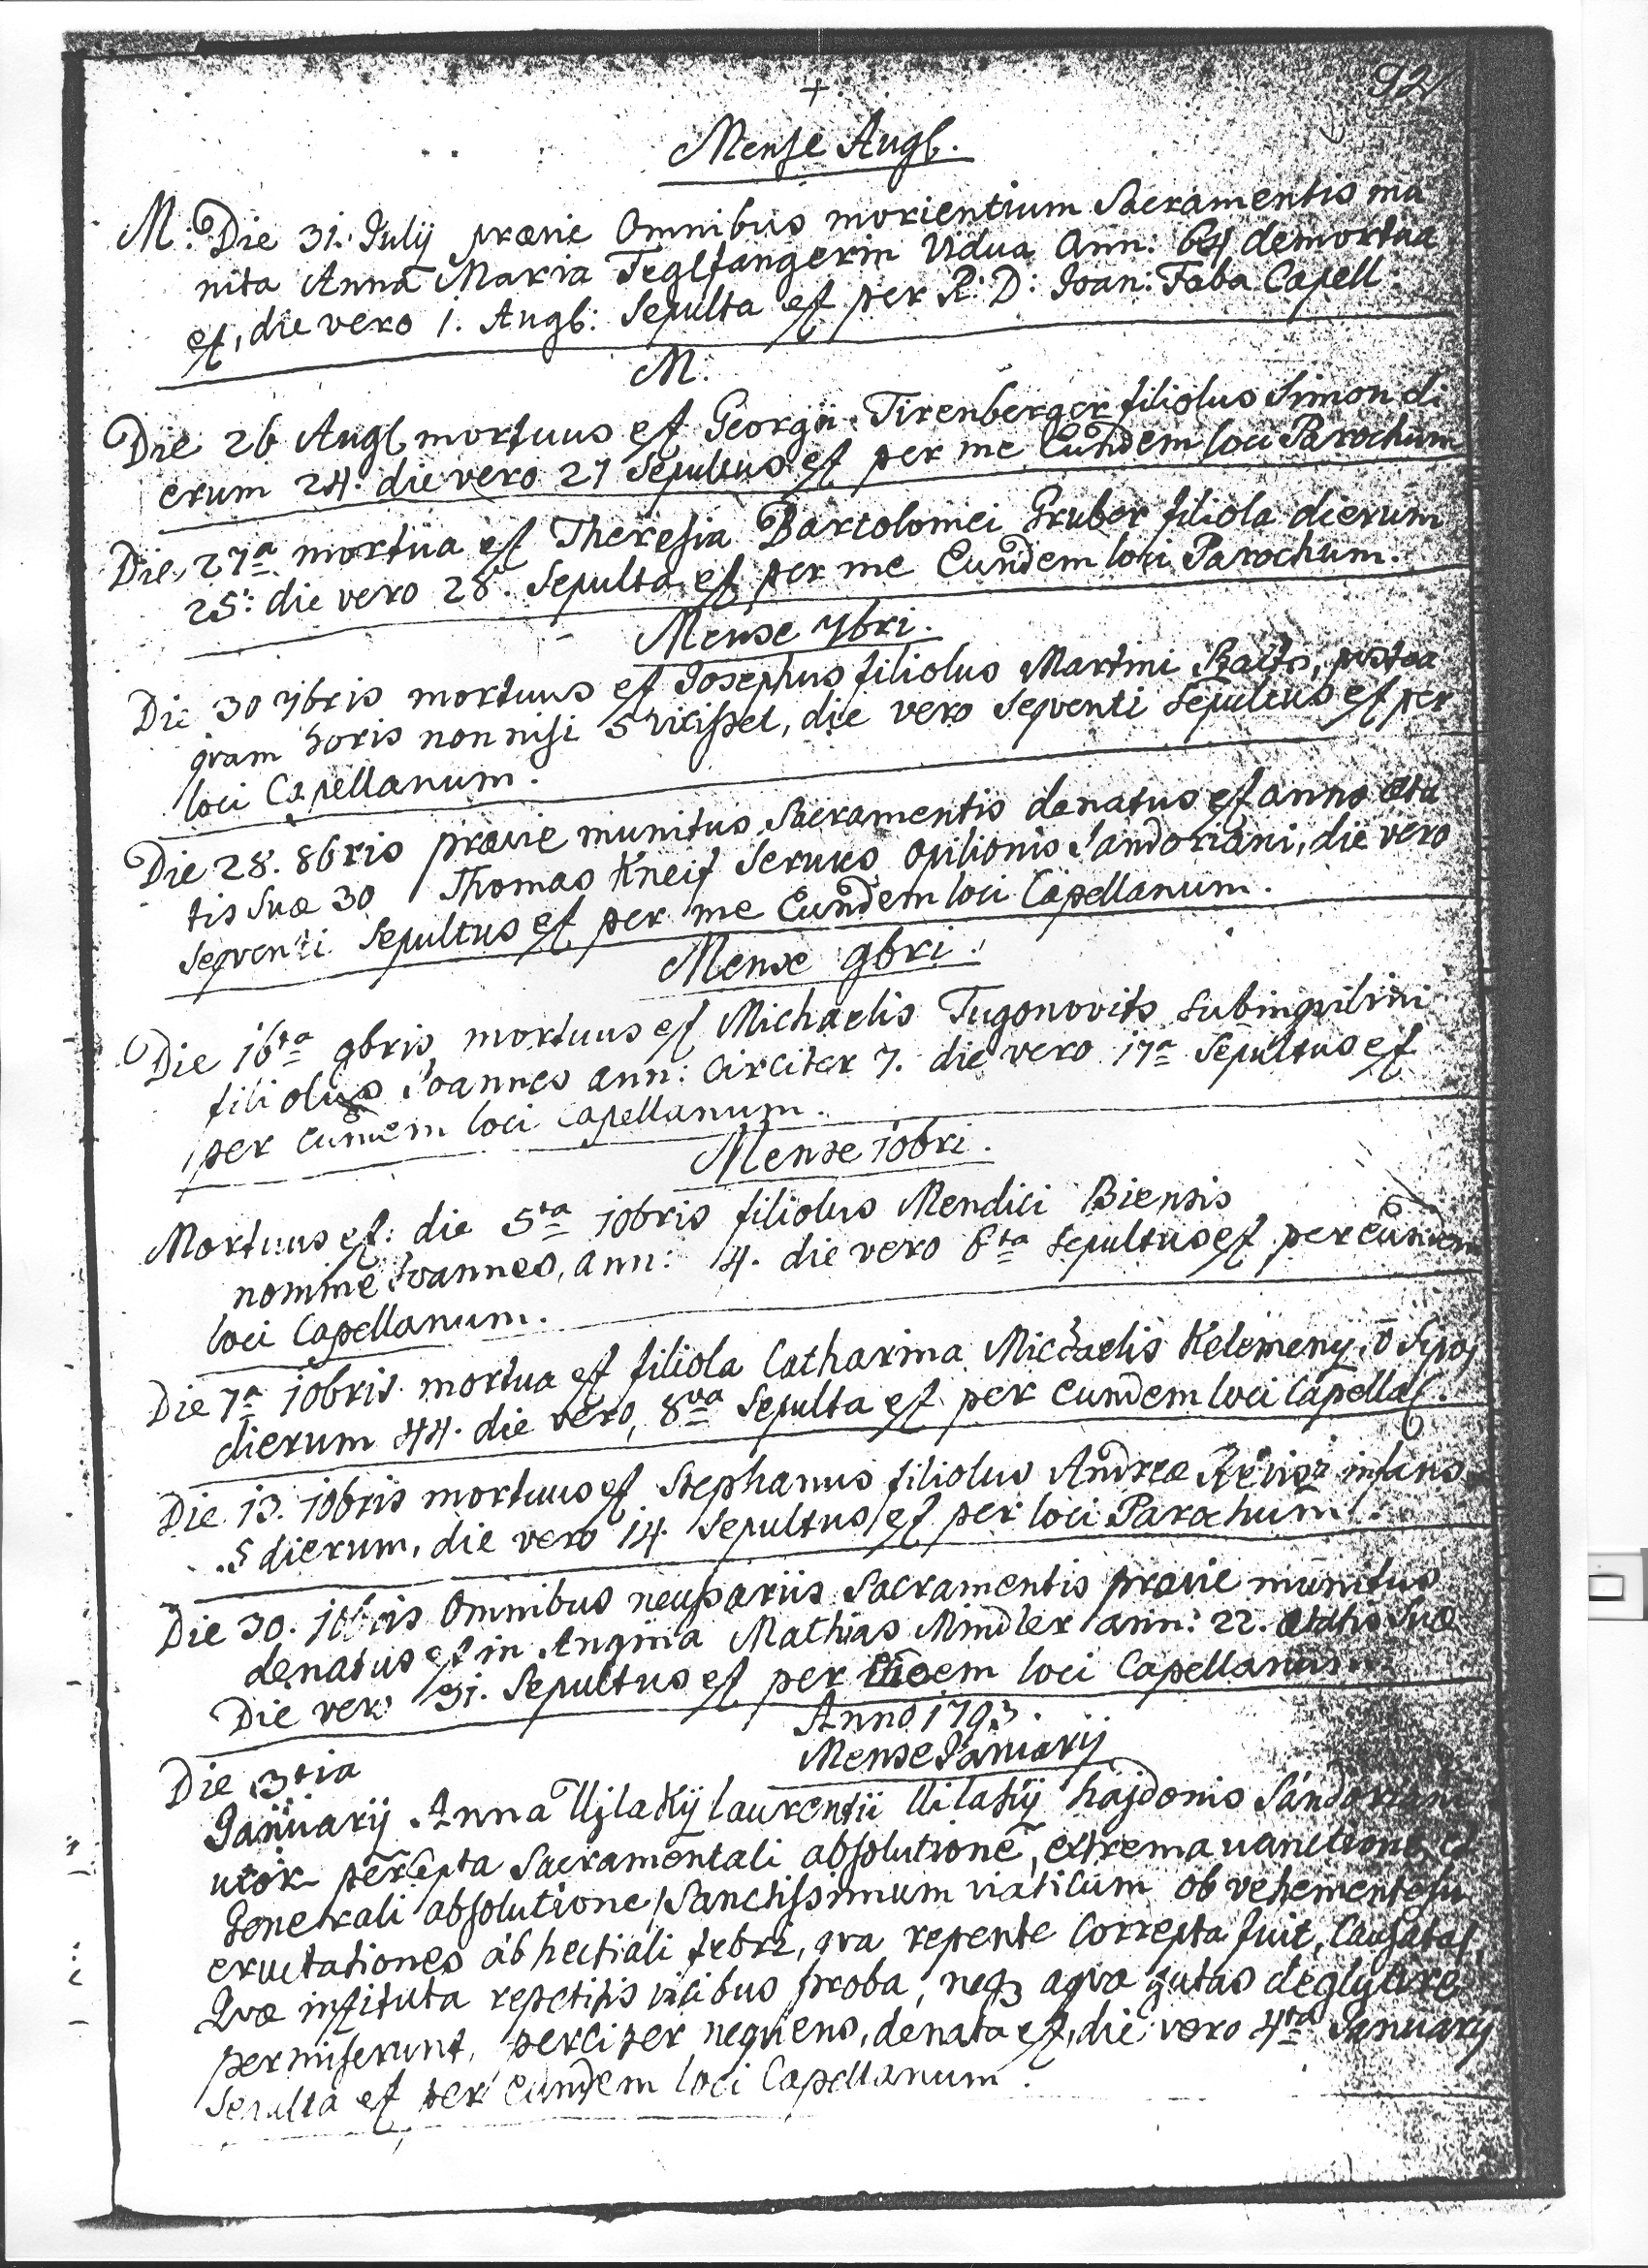 92
+
Mense Augb.
M: Die 31. Julij prævie Omnibus morientium Sacramentis mu
nita Anna Maria Teglfangerin Vidua Ann: 64 demortua
est, die vero 1. Augb: Sepulta est per R: D: Joan: Faba Capell:
M.
Die 26 Augb mortuus est Georgii Tirenberger filiolus Simon di
erum 24. die vero 27 Sepultus est per me Eundem loci Parochum
Die 27a mortua est Theresia Bartolomei Gruber filiola dierum
25: die vero 28. Sepulta est per me Eundem loci Parochum.
Mense 7bri.
Die 30 7bris mortuus est Josephus filiolus Martini postea
qvam horis non nisi 5 vixisset, die vero seqventi Sepultus est per
loci Capellanum.
Die 28. 8bris prævie munitus Sacramentis denatus est anno æta
tis Suæ 30 Thomas Kneif Servus Opilionis Sandoriani, die vero
seqventi Sepultus est per me Eundem loci Capellanum.
Mense 9bri.
Die 16ta 9bris mortuus est Michaelis Tugonovits Subinqvilini
filiolus Joannes ann: circiter 7. die vero 17a Sepultus est
per eundem loci Capellanum.
Mense 10bri.
Mortuus est: die 5ta 10bris filiolus Mendici Biensis
nomine Joannes, ann: 4. die vero 6ta Sepultus est per eundem
loci Capellanum.
Die 7a 10bris mortua est filiola Catharina Michaelis Kelemeny
dierum 44. die vero, 8va Sepulta est per eundem loci Capella
Die 13. 10bris mortuus est Stephanus filiolus Andreæ infans
5 dierum, die vero 14. Sepultus est per loci Parochum.
Die 30. 10bris Omnibus necessariis Sacramentis prævie munitus
denatus est in Angina Mathias Mindler ann: 22. ætatis suæ
Die vero 31. Sepultus est per loci Capellanum.
Anno 1793.
Mense Januarij
Die 3tia
Januarij Anna Ujlakij Laurentii Uilakij hajdonis Sandoriani
uxor percepta Sacramentali absolutione, extrema unctione, et
Generali absolutione, Sanctissimum viaticum ob vehementes
eructationes ab hectiali febri, qva repente Correpta fuit, Causatas,
Qvæ instituta repetitis vicibus proba, neq3 aqvæ gutas deglutire
permiserunt, perciper neqviens, denata est, die vero 4ta Januarij
Sepulta est per eundem loci Capellanum.